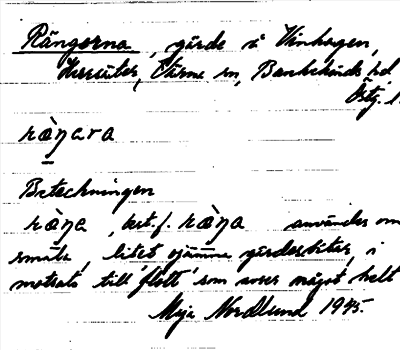 Rångorna, gärde i Vinhagen,
Herrsäter, Värna sn, Bankekinds hd
Östg. l.
ràŋara
Beteckningen
ràŋa, best. f. ràŋa användes om
små, litet ojämna gärdesbitar, i
motsats till 'flott' som avser något helt
Maja Nordlund 1945.